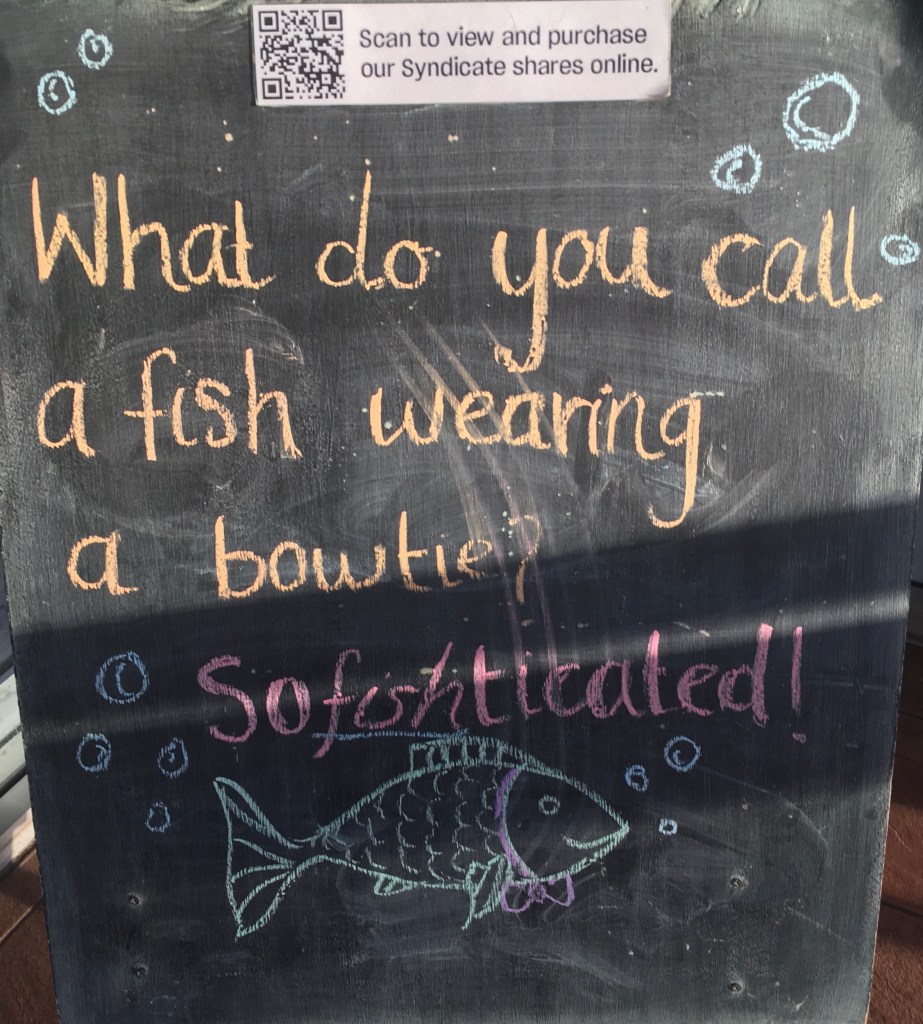 Scan to view and purchase
our Syndicate shares online.
What do you call
a fish wearing
a bowtie?
Sofishticated!